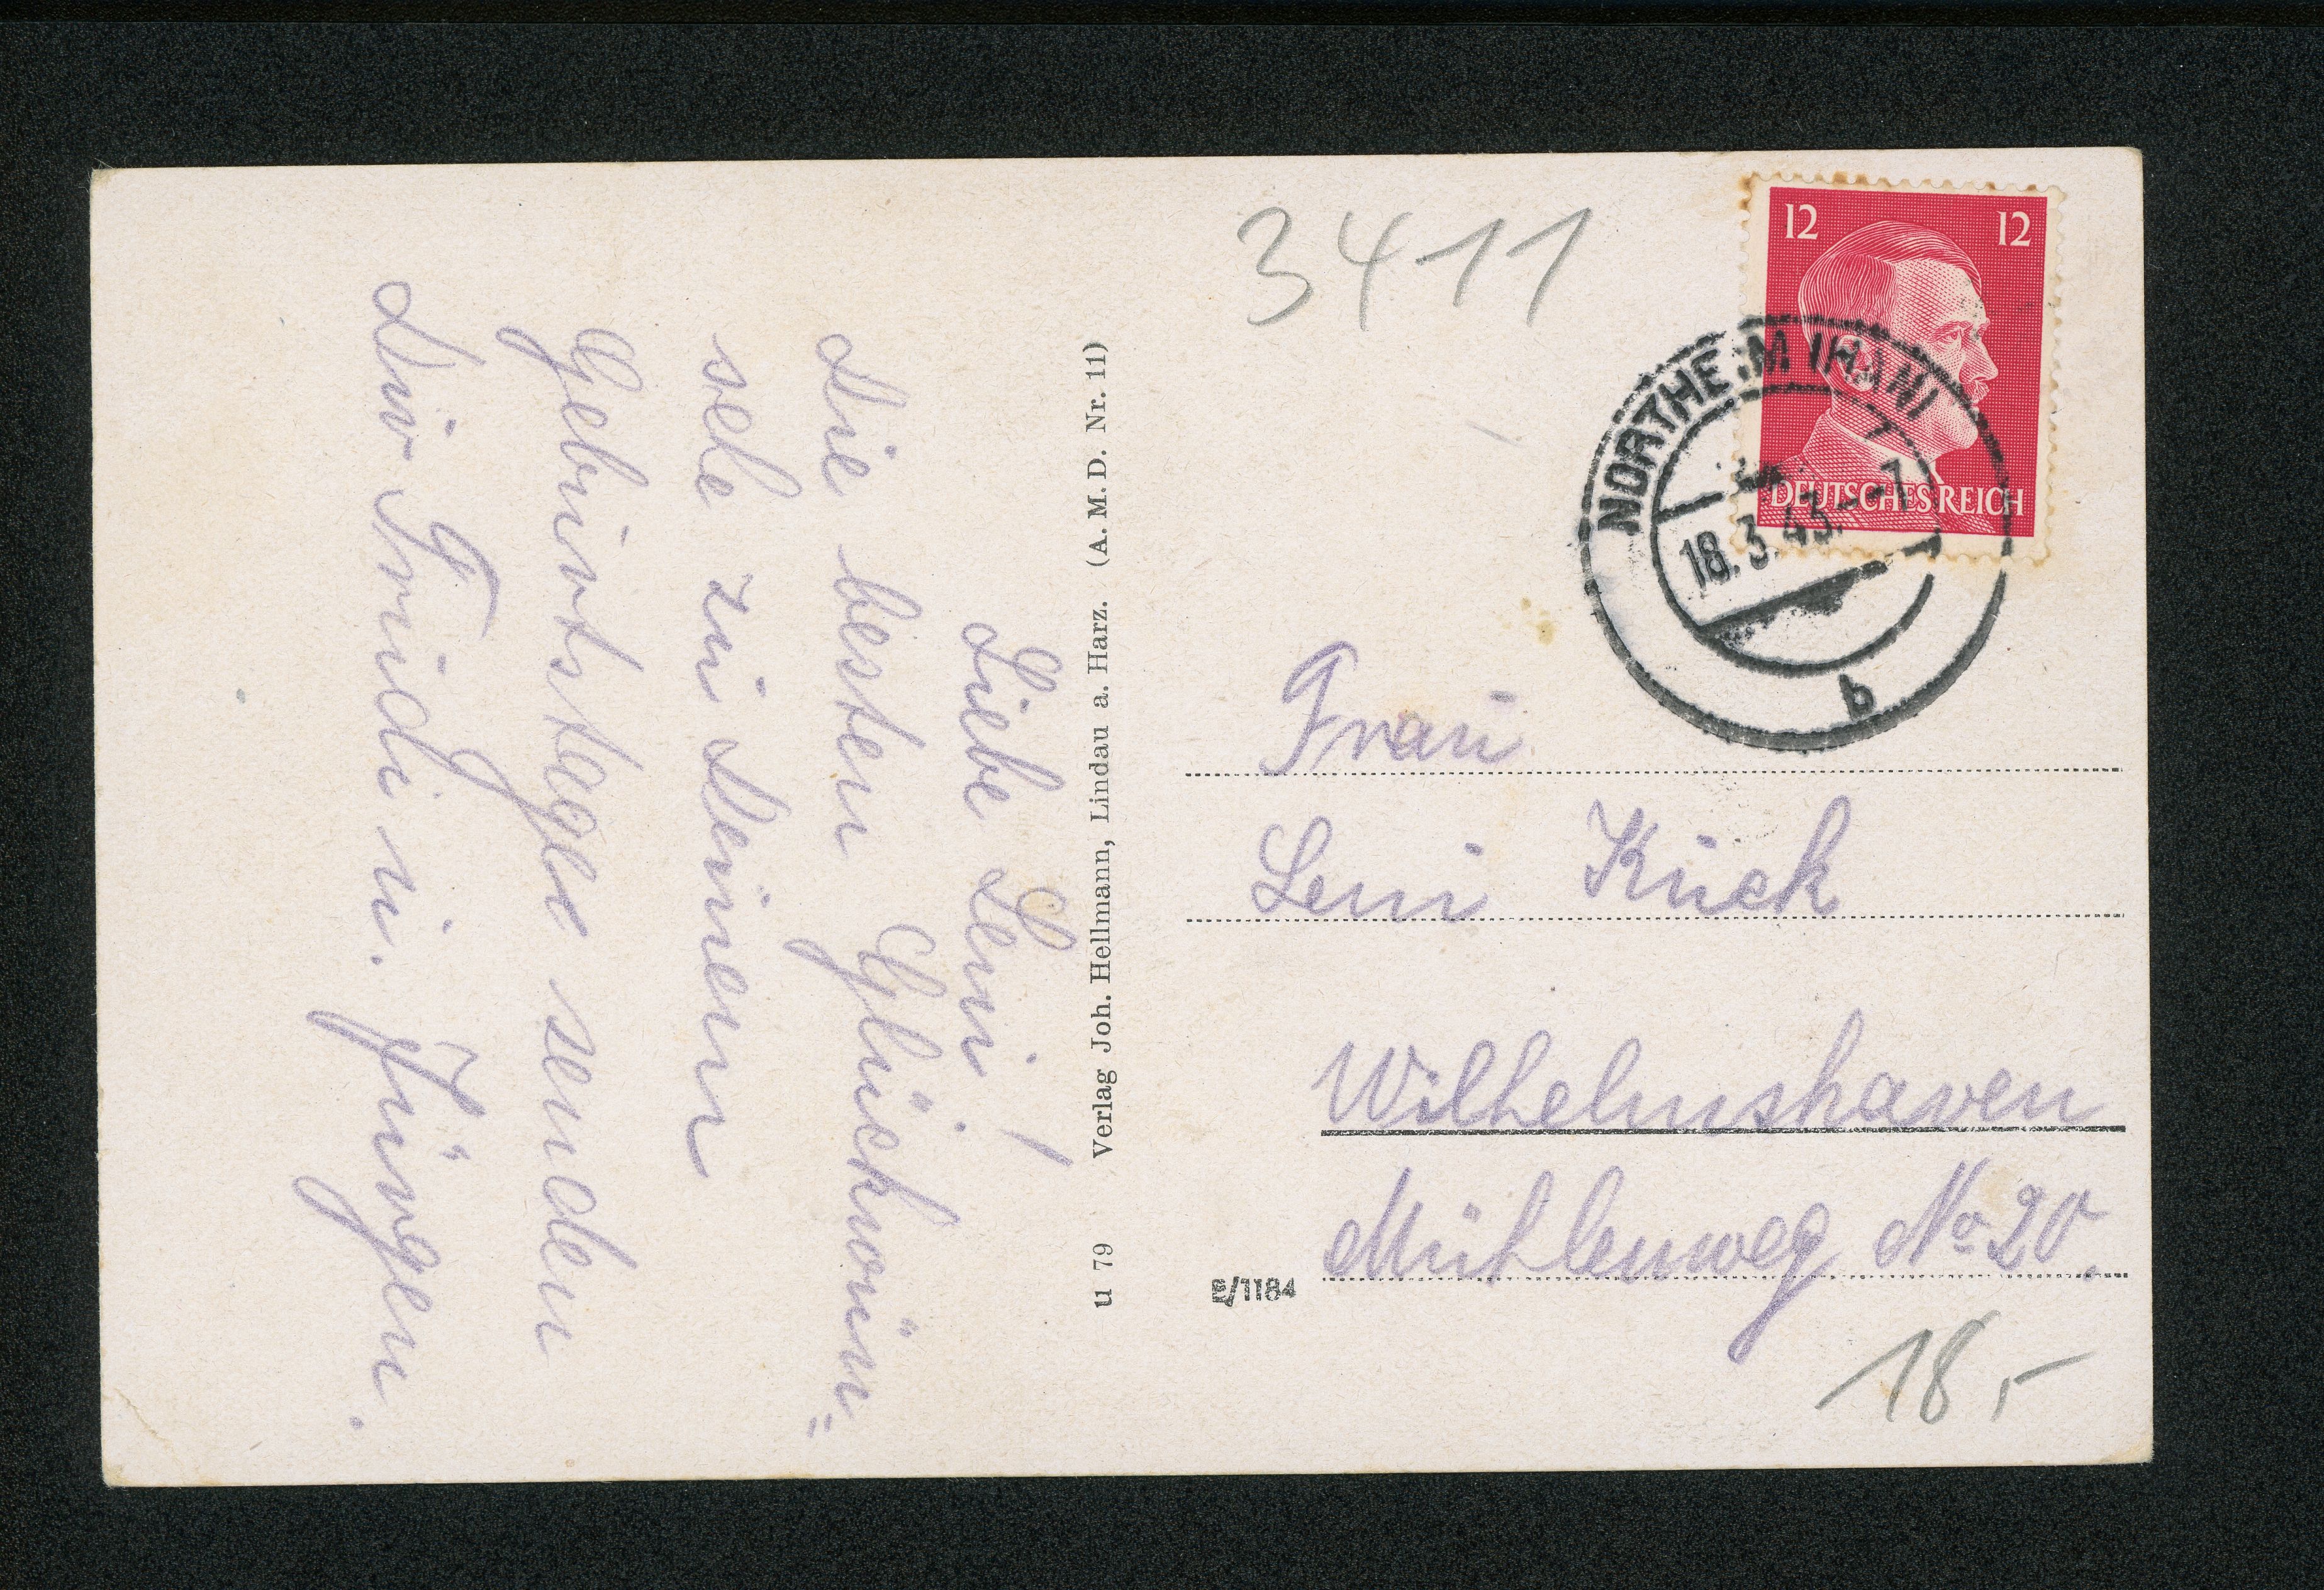 3411
12 12
DEUTSCHES REICH
NORTHEIM (HAN)
18.3.43.--7
b
Liebe Leni!
Die besten Glückwün=
sche zu Deinem
Geburtstage senden
Dir Trudi u. Jürgen.
u 79 Verlag Joh. Hellmann, Lindau a. Harz. (A. M. D. Nr. 11)
Frau
Leni Kuck
Wilhelmshaven
Mühlenweg No 20.
B/1184
18,-